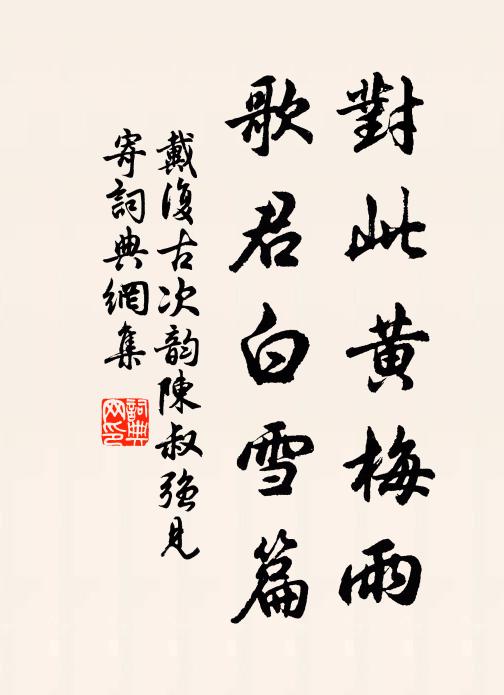 對此黃梅雨
歌君白雪篇
戴復古次韵陳叔強見
寄詞典網集
詞典
网印